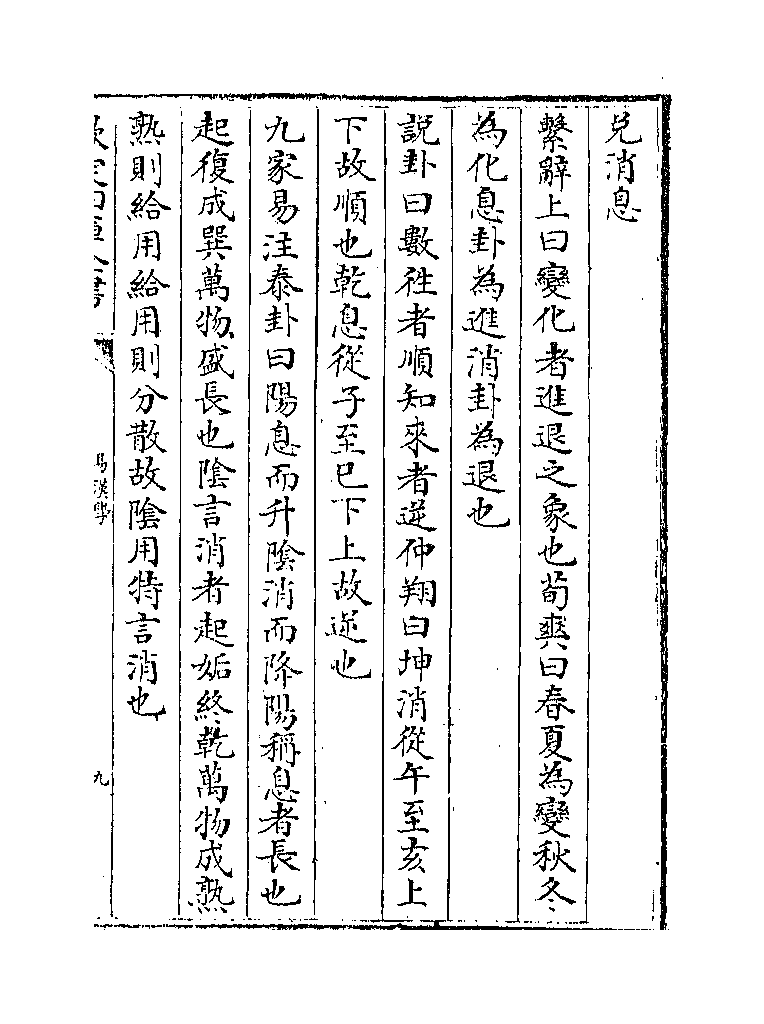 兌消息
繫辭上曰變化者進退之象也荀爽曰春夏為變秋冬
為化息卦為進消卦為退也
說卦曰數徃者順知來者逆仲翔曰坤消從午至亥上
下故順也乾息從子至巳下上故逆也
九家易注泰卦曰陽息而升陰消而降陽稱息者長也
起復成巽萬物盛長也陰言消者起姤終乾萬物成熟
熟則給用給用則分散故陰用特言消也
欽定四庫全書
易漢學
九